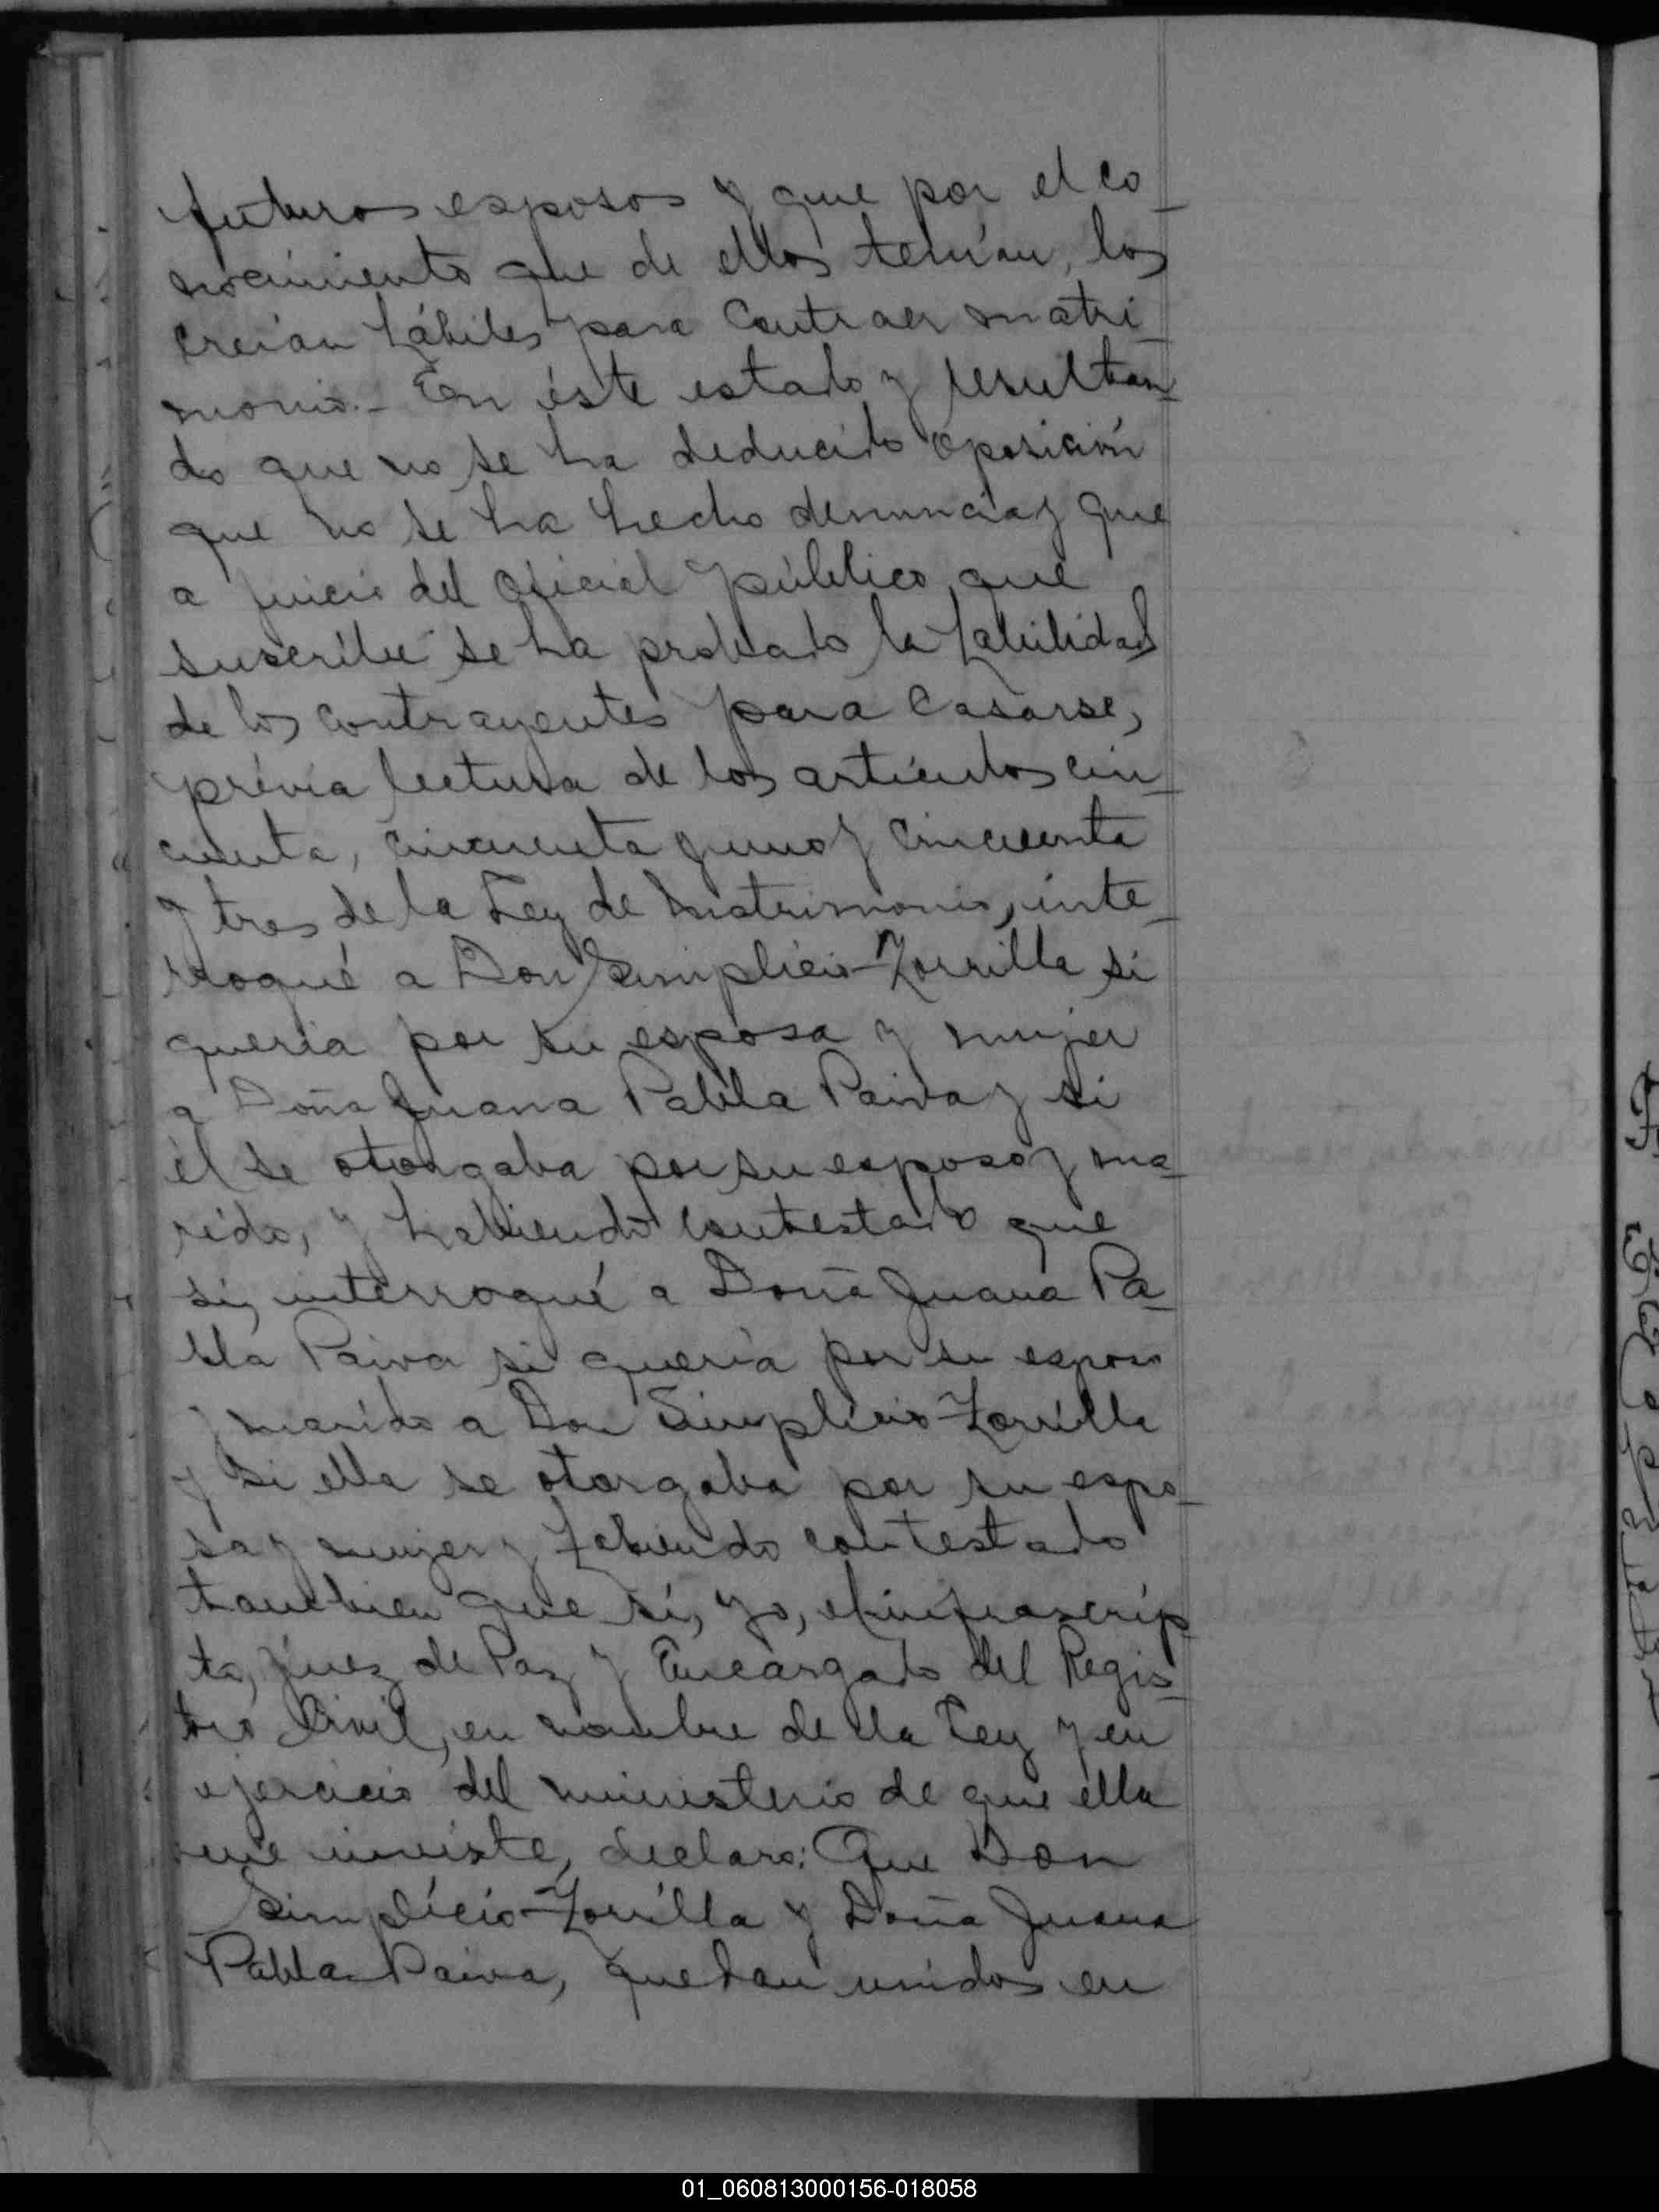 futuros esposos y que por el co-
nocimiento que de ellos tenían, los
creían hábiles para contraer matri-
monio.- En éste estado y resultan-
do que no se ha deducido oposición
que no se ha hecho denuncia y que
a juicio del oficial público que
suscribe se ha probado la habilidad
de los contrayentes para casarse,
prévia lectura de los artículos cin-
cuenta, cincuenta y uno y cincuenta
y tres de la Ley de Matrimonio, inte-
rrogué a Don Simplicio Zorrilla si
quería por su esposa y mujer
a Doña Juana Pabla Paiva y si
él se otorgaba por su esposo y ma-
rido, y habiendo contestado que
sí, interrogué a Doña Juana Pa-
bla Paiva si quería por su esposo
y marido a Don Simplicio Zorrilla
y si ella se otorgaba por su espo-
sa y mujer y habiendo contestado
tambien que sí, yo, el infrascrip
to, juez de Paz y Encargado del Regis-
tro Civil, en nombre de la Ley y en
ejercicio del ministerio de que ella
me inviste, declaro: Que Don
Simplicio Zorrilla y Doña Juana
Pabla Paiva, quedan unidos en
01_060813000156-018058